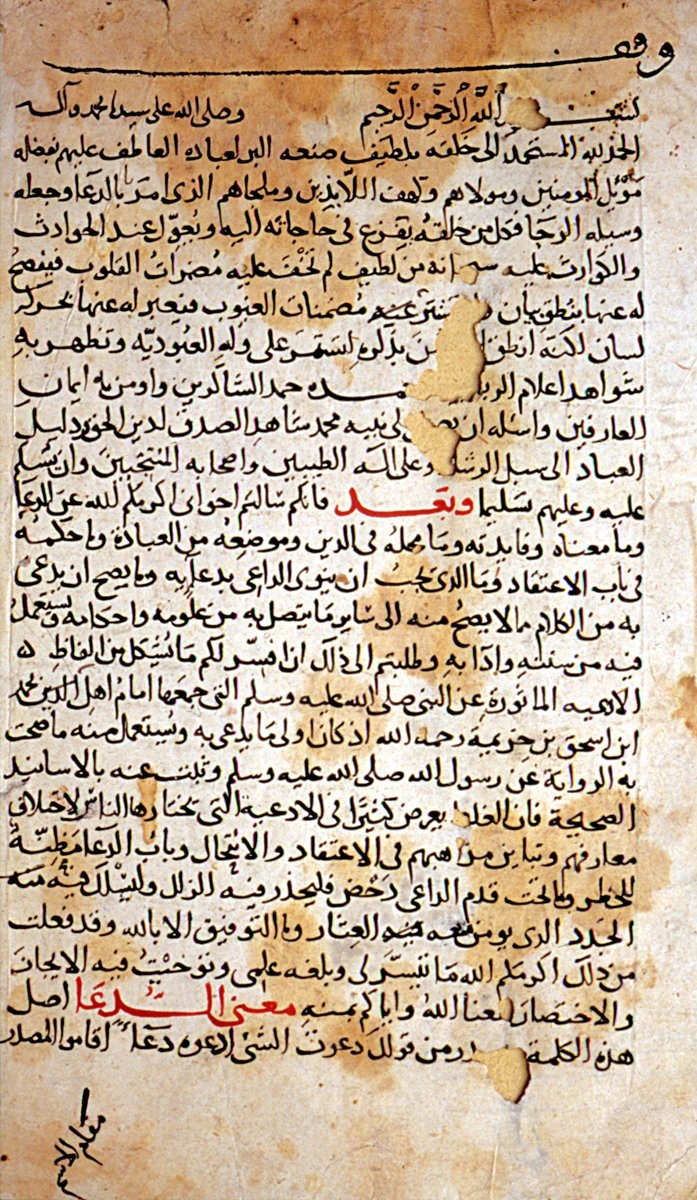 وقف
بسم الله الرحمن الرحيم وصلى الله على سيدنا محمد وآله
الحمد لله المستحمد الى خلقه بلطيف صنعه البر بعباده العاطف عليهم بفضله
موئل المومنين ومولاهم وكهف اللايذين وملجاهم الذى امر بالدعا وجعله
وسيله الرجا فكل من خلقه يفزع فى حاجاته اليه ويعول عند الحوادث
والكوارث عليه سبحانه من لطيف لم تخف عليه مضمرات القلوب فيفصح
له عنها بنطق بيان ولم تستتر عنه مضمنات الغيوب فيعبر له عنها بحركة
لسان لكنه انطق بذكره ليستمر على وله العبوديه وتظهر به
شواهد اعلام الربوبيه حمد الشاكرين واومن به ايمان
العارفين واسئله ان يصلى على نبيه محمد شاهد الصدق لدين الحق ودليل
العباد الى سبل الرشد وعلى اله الطيبين واصحابه المنتخبين وان يسلم
عليه وعليهم تسليما وبعد فانكم سالتم اخوانى اكرمكم الله عن الدعا
وما معناه وفايدته وما محله فى الدين وموضعه من العبادة وما حكمه
فى باب الاعتقاد وما الذى يجب ان ينوى الداعى بدعايه وما يصح ان يدعى
به من الكلام مما لا يصح منه الى ساير ما يتصل به من علومه واحكامه ويستعمل
فيه من سننه وادابه وطلبتم الى ذلك ان افسر لكم ما يشكل من الفاظ
الادعيه الماثورة عن النبى صلى الله عليه وسلم التى جمعها امام اهل الحديث محمد
ابن اسحق بن خزيمة رحمه الله اذ كان اولى ما يدعى به ويستعمل منه ما صحت
به الرواية عن رسول الله صلى الله عليه وسلم وثبت عنه بالاسانيد
الصحيحة فان الغلط يعرض كثيرا فى الادعية التى تختارها الناس لاختلاف
معارفهم وتباين مذاهبهم فى الاعتقاد والانتحال وباب الدعا مظنة
للخطر وما تحت قدم الداعى دحض فليحذر فيه الزلل وليسلك فيه منه
الجدد الذى يومن معه العثار وما التوفيق الا بالله وقد فعلت
من ذلك اكرمكم الله ما تيسر لى وبلغه علمى وتوخيت فيه الايجاز
والاختصار نفعنا الله واياكم بمنه معنى الدعا اصل
هذه الكلمة مصدر من قولك دعوت الشئ ادعوه دعاً اقاموا المصدر